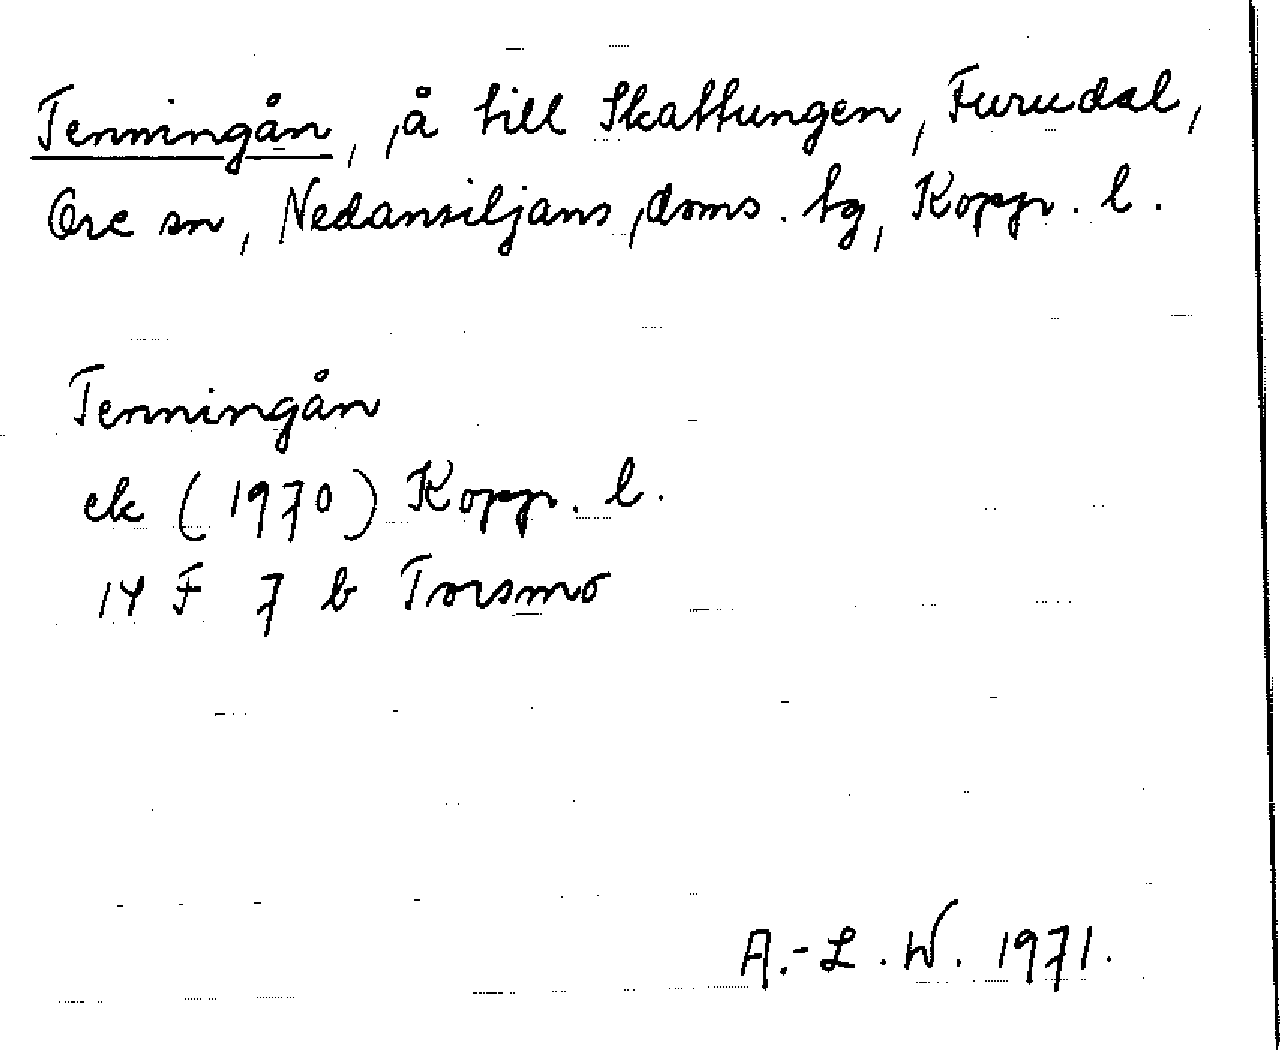 Tenningån, å till Skattungen, Furudal,
Ore sn, Nedansiljans doms. tg, Kopp. l.
Tenningån
ek (1970) Kopp. l.
14 F 7 b Torsmo
A.-L. W. 1971.